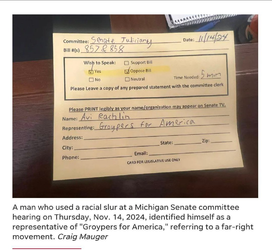 Committee: Senate Judiciary Date: 11/14/24
Bill #(s) 857 & 858
Wish to Speak: Support Bill
Yes Oppose Bill
No Neutral Time Needed: 3 min
Please Leave a copy of any prepared statement with the committee clerk.
Please PRINT legibly as your name/organization may appear on Senate TV.
Name: Avi
Representing: Groypers for America
Address:
City: State: Zip:
Phone: Email:
CARD FOR LEGISLATIVE USE ONLY
A man who used a racial slur at a Michigan Senate committee
hearing on Thursday, Nov. 14, 2024, identified himself as a
representative of "Groypers for America," referring to a far-right
movement. Craig Mauger